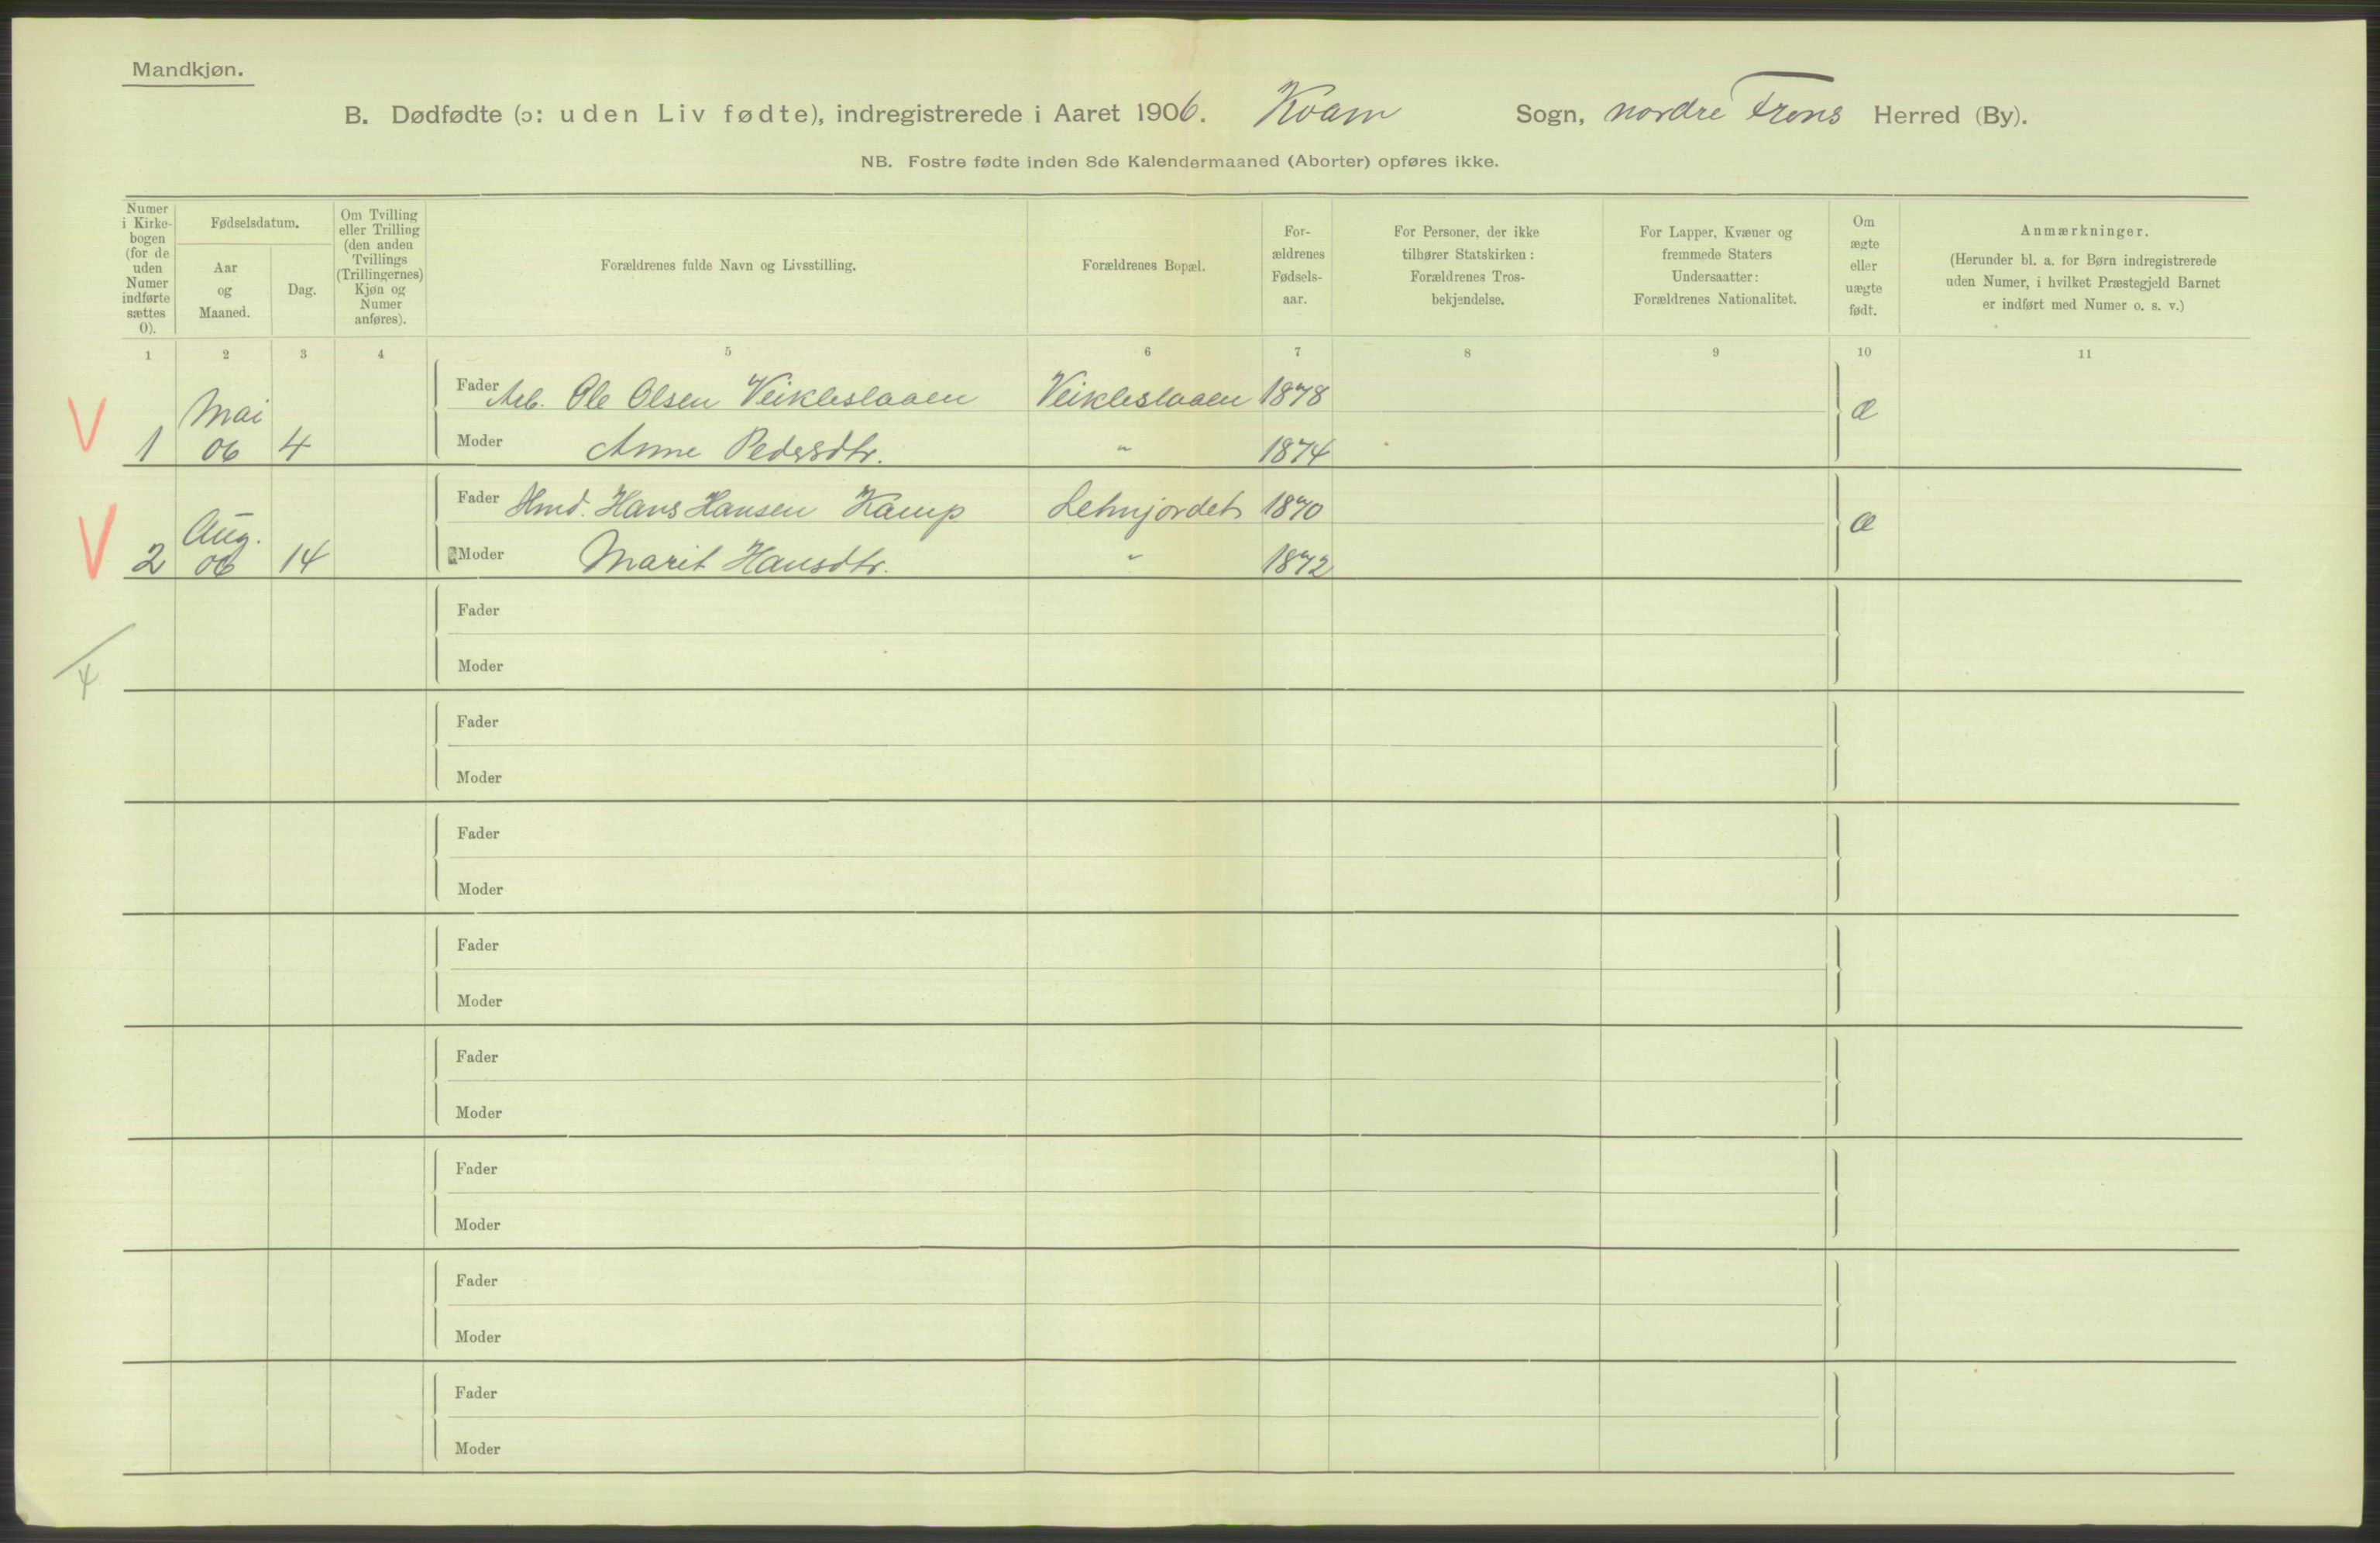 Mandkjøn.
B. Dødfødte (ɔ: uden Liv fødte), indregistrerede i Aaret 1906. Kvam Sogn, nordre Frons Herred (By).
NB. Fostre fødte inden 8de Kalendermaaned (Aborter) opføres ikke.
Numer i Kirkebogen (for de uden Numer indførte sættes 0).
Fødselsdatum.
Aar og Maaned.
Dag.
Om Tvilling eller Trilling (den anden Tvillings (Trillingernes) Kjøn og Numer anføres).
Forældrenes fulde Navn og Livsstilling.
Forældrenes Bopæl.
Forældrenes Fødselsaar.
For Personer, der ikke tilhører Statskirken: Forældrenes Trosbekjendelse.
For Lapper, Kvæner og fremmede Staters Undersaatter: Forældrenes Nationalitet.
Om ægte eller uægte født.
Anmærkninger.
(Herunder bl. a. for Børn indregistrerede uden Numer, i hvilket Præstegjeld Barnet er indført med Numer o. s. v.)
1 2 3 4 5 6 7 8 9 10 11
V 1 Mai 06 4 Fader Arb. Ole Olsen Veikleslaaen Veikleslaaen 1878 Æ
Moder Anne Pedersdtr. " 1874
V 2 Aug. 06 14 Fader Hmd. Hans Hansen Kamp Lehnjordet 1870 Æ
Moder Marit Hansdtr. " 1872
Fader
4
Moder
Fader
Moder
Fader
Moder
Fader
Moder
Fader
Moder
Fader
Moder
Fader
Moder
Fader
Moder